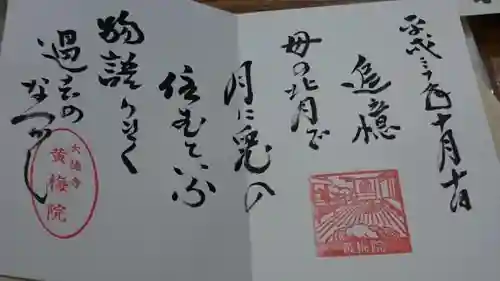 平成三十年十月十日
追憶
母の背で
月に兎の
住むてふ
物語りきく
過去の
なつかし
大徳寺
黄梅院
黄梅院